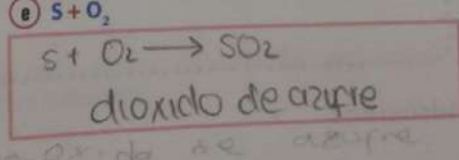 e S + O₂
S + O₂ → SO₂
dioxido de azufre